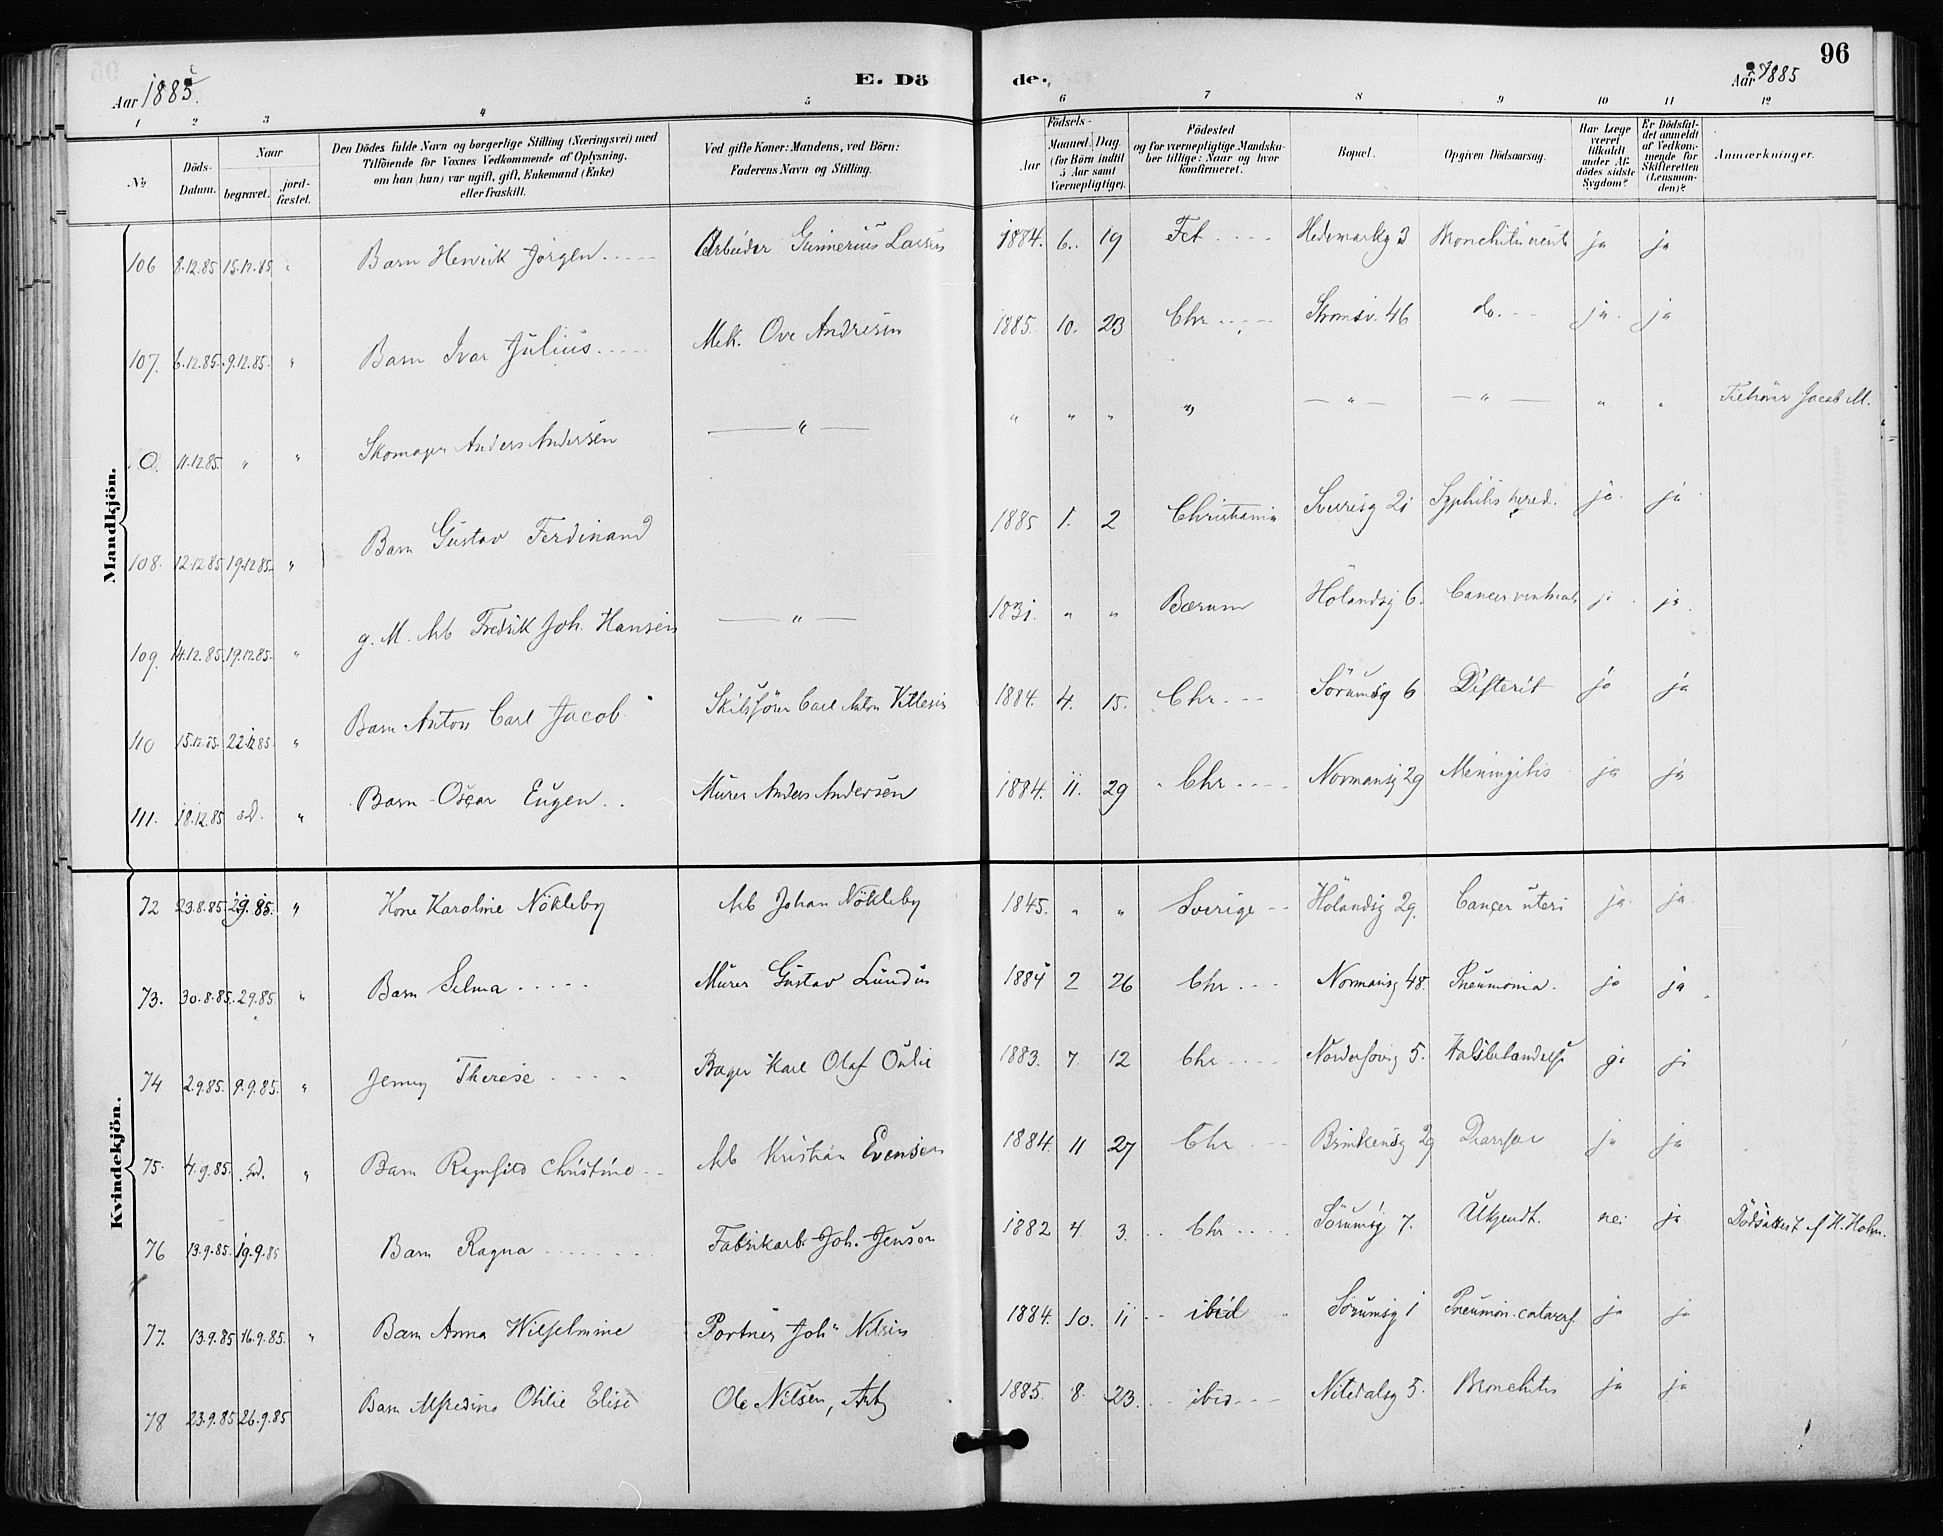 Aar 1885.
E. Dö
de.
Aar 1885
96
1 2 3 4 5 6 7 8 9 10 11 12
No
Döds-Datum.
Naar
begravet.
jord-fæstet.
Den Dödes fulde Navn og borgerlige Stilling (Næringsvei) med
Tilföiende for Voxnes Vedkommende af Oplysning,
om han (hun) var ugift, gift, Enkemand (Enke)
eller fraskilt.
Ved gifte Koner: Mandens, ved Börn:
Faderens Navn og Stilling.
Födsels-
Aar
Maaned. Dag.
(for Börn indtil
5 Aar samt
Værnepligtige).
Födested
og for værnepligtige Mandska-
ber tillige: Naar og hvor
konfirmeret.
Bopæl.
Opgiven Dödsaarsag.
Har Læge
været
tilkaldt
under Af-
dödes sidste
Sygdom?
Er Dödsfal-
det anmeldt
af Vedkom-
mende for
Skifteretten
(Lensman-
den)?
Anmærkninger.
Mandkjön.
106 8.12.85 15.12.85 " Barn Henrik Jörgen Arbeider Gunnerius Larsen 1884. 6. 19 Fet Hedemarkg 3 Bronchitis ja ja
107. 6.12.85. 9.12.85. " Barn Ivar Julius Mek. Ove Andresen 1885. 10. 23 Chr Strömsv. 46 do. ja. ja
0. 11.12.85. " " Skomager Anders Andersen — " — " " " " — " — — " — " " Tilhörer Jacob M.
108. 12.12.85 19.12.85. " Barn Gustav Ferdinand 1885 1. 2 Christiania Sverisg 21 Syphilis hered. ja. ja
109. 14.12.85. 19.12.85. " g. M. Arb Fredrik Joh. Hansen — " — 1831. " " Bærum Hölandsg 6. Cancer ventriculi ja. ja.
110 15.12.85. 22.12.85. " Barn Anton Carl Jacob Carl Anton 1884. 4. 15. Chr. Sörumsg 6 Difterit ja ja
111. 18.12.85 sD. " Barn Oscar Eugen Murer Anders Andersen 1884. 11. 29 Chr Normansg 29 Meningitis ja ja
Kvindekjön.
72 23.8.85. 29.8.85. " Kone Karoline Nökleby Arb Johan Nökleby 1845. " " Sverige Hölandsg 29. Cancer uteri ja. ja.
73. 30.8.85. 2.9.85 " Barn Selma Murer Gustav 1884 2 26 Chr. Normansg 48. Pneumonia. ja ja
74 2.9.85. 9.9.85. " Jenny Therese Bager Karl Olaf 1883. 7. 12 Chr 5. ja ja
75. 4.9.85. sD. " Barn Ragnhild Christine Arb Kristian Evensen 1884. 11 27 Chr 29 Diarrhoe ja ja
76 13.9.85. 19.9.85 Barn Ragna Fabrikarb. Joh. Jenson 1882 4 3. Chr Sörumsg 7. Ukjendt. nei ja Dödsattest f H. Holm.
77. 13.9.85 16.9.85. " Barn Anna Wilhelmine Portner Joh" Nilsen 1884. 10. 11 ibid Sörumsg 1 Pneumon. catarrh. ja ja
78 23.9.85 26.9.85 Barn Alfredine Othilie Elise Ole Nilsen, Arb 1885. 8. 23. ibid Nitedalsg 5. Bronchitis ja ja